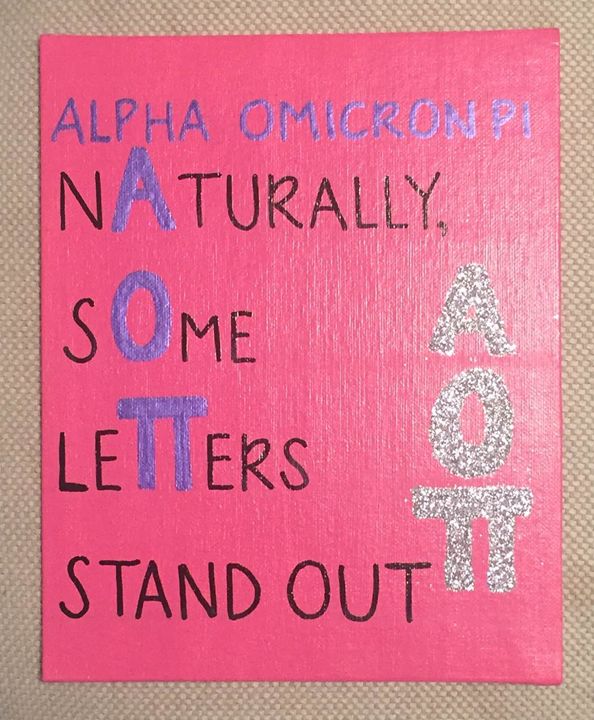 ALPHA OMICRON PI
NATURALLY,
SOME
LEΠERS
STAND OUT
Α
Ο
Π